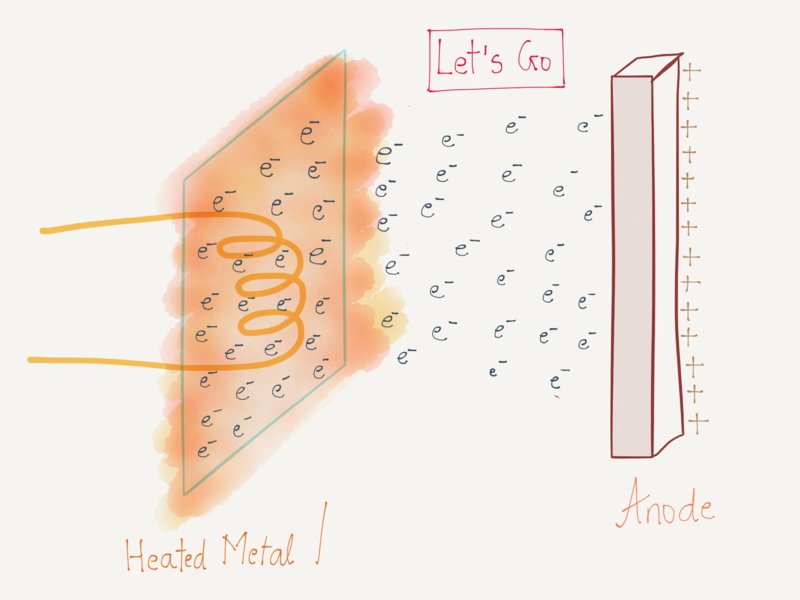 Let's Go
e⁻ e⁻ e⁻ e⁻ e⁻ e⁻ e⁻ e⁻ e⁻ e⁻ e⁻ e⁻ e⁻ e⁻ e⁻ e⁻ e⁻ e⁻ e⁻ e⁻ e⁻ e⁻ e⁻ e⁻ e⁻
e⁻ e⁻ e⁻ e⁻ e⁻ e⁻ e⁻ e⁻ e⁻ e⁻ e⁻ e⁻ e⁻ e⁻ e⁻ e⁻ e⁻ e⁻ e⁻ e⁻ e⁻ e⁻ e⁻ e⁻ e⁻ e⁻ e⁻
+ + + + + + + + + + + + + +
Heated Metal
Anode